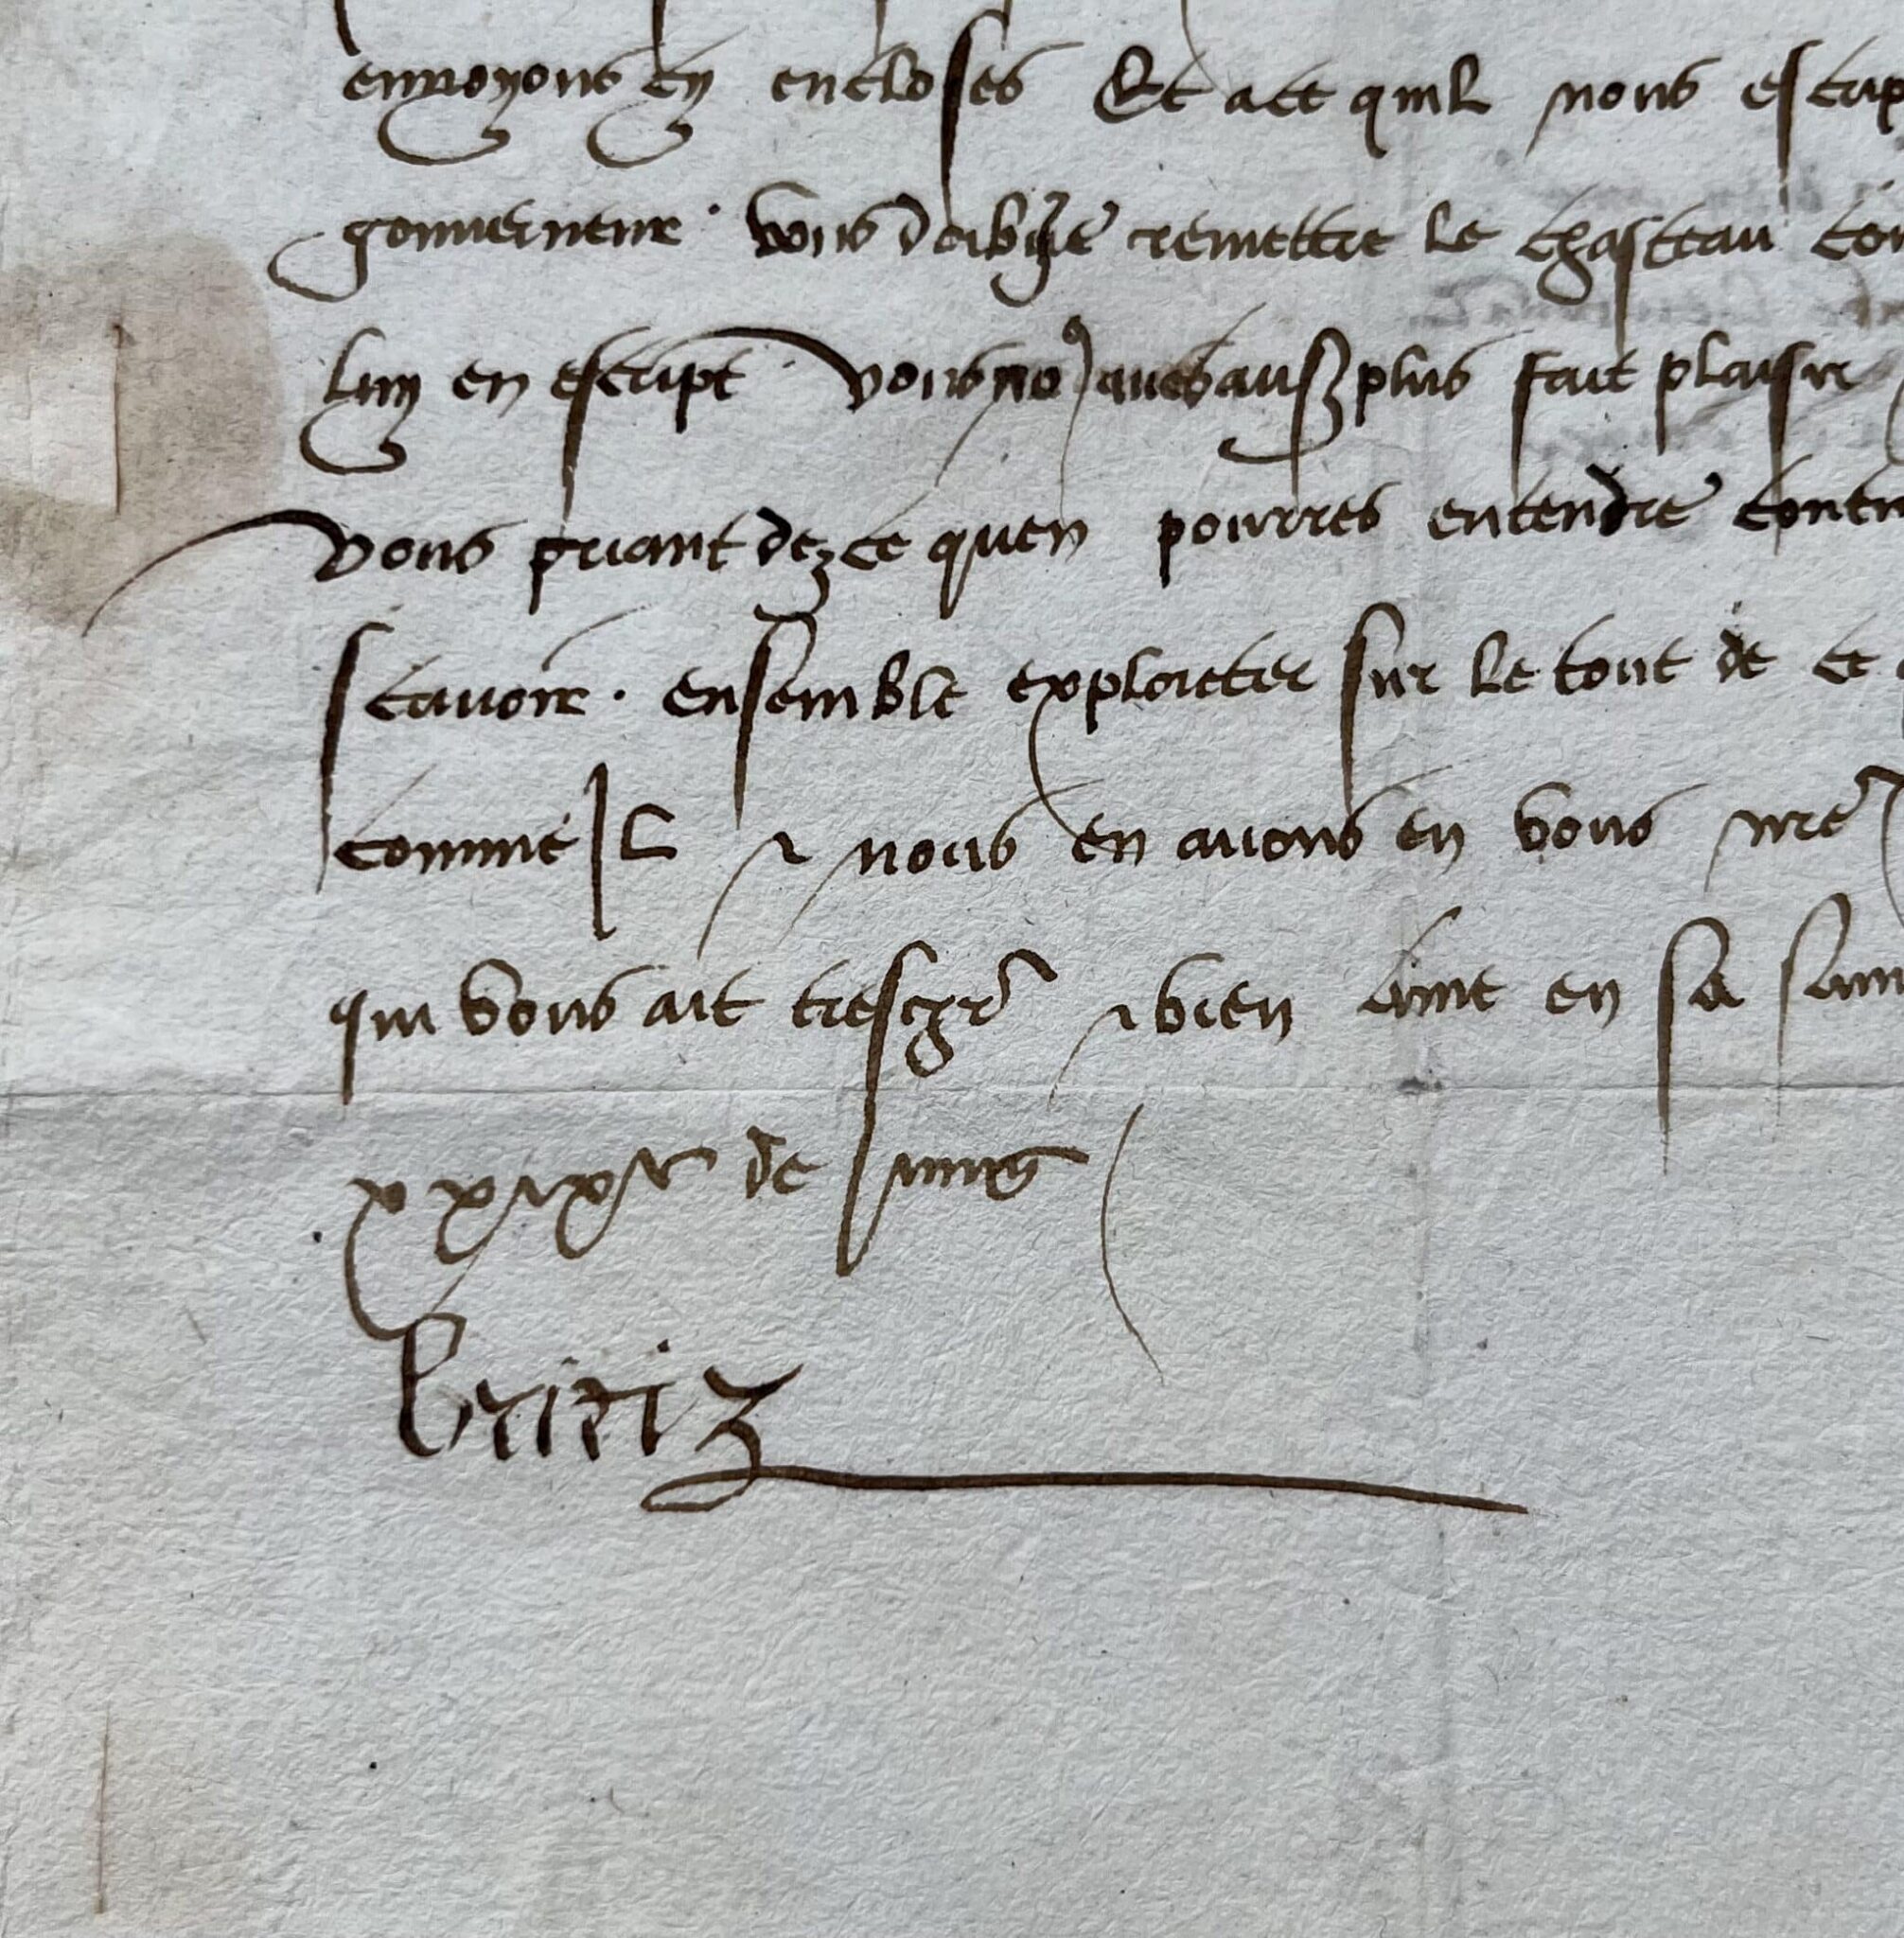 envoyons cy encloses Et act quil nous escrip
gouverneur. vous remettre le chasteau
luy en escript. vous aves aussi plus fait plaisir
vous priant dez ce quen pourres entendre
scavoir. ensemble exploicter sur le tout de ce
comme Il & nous en avons en vous nre
qui vous ait treschr & bien aime en sa sain
xxix de